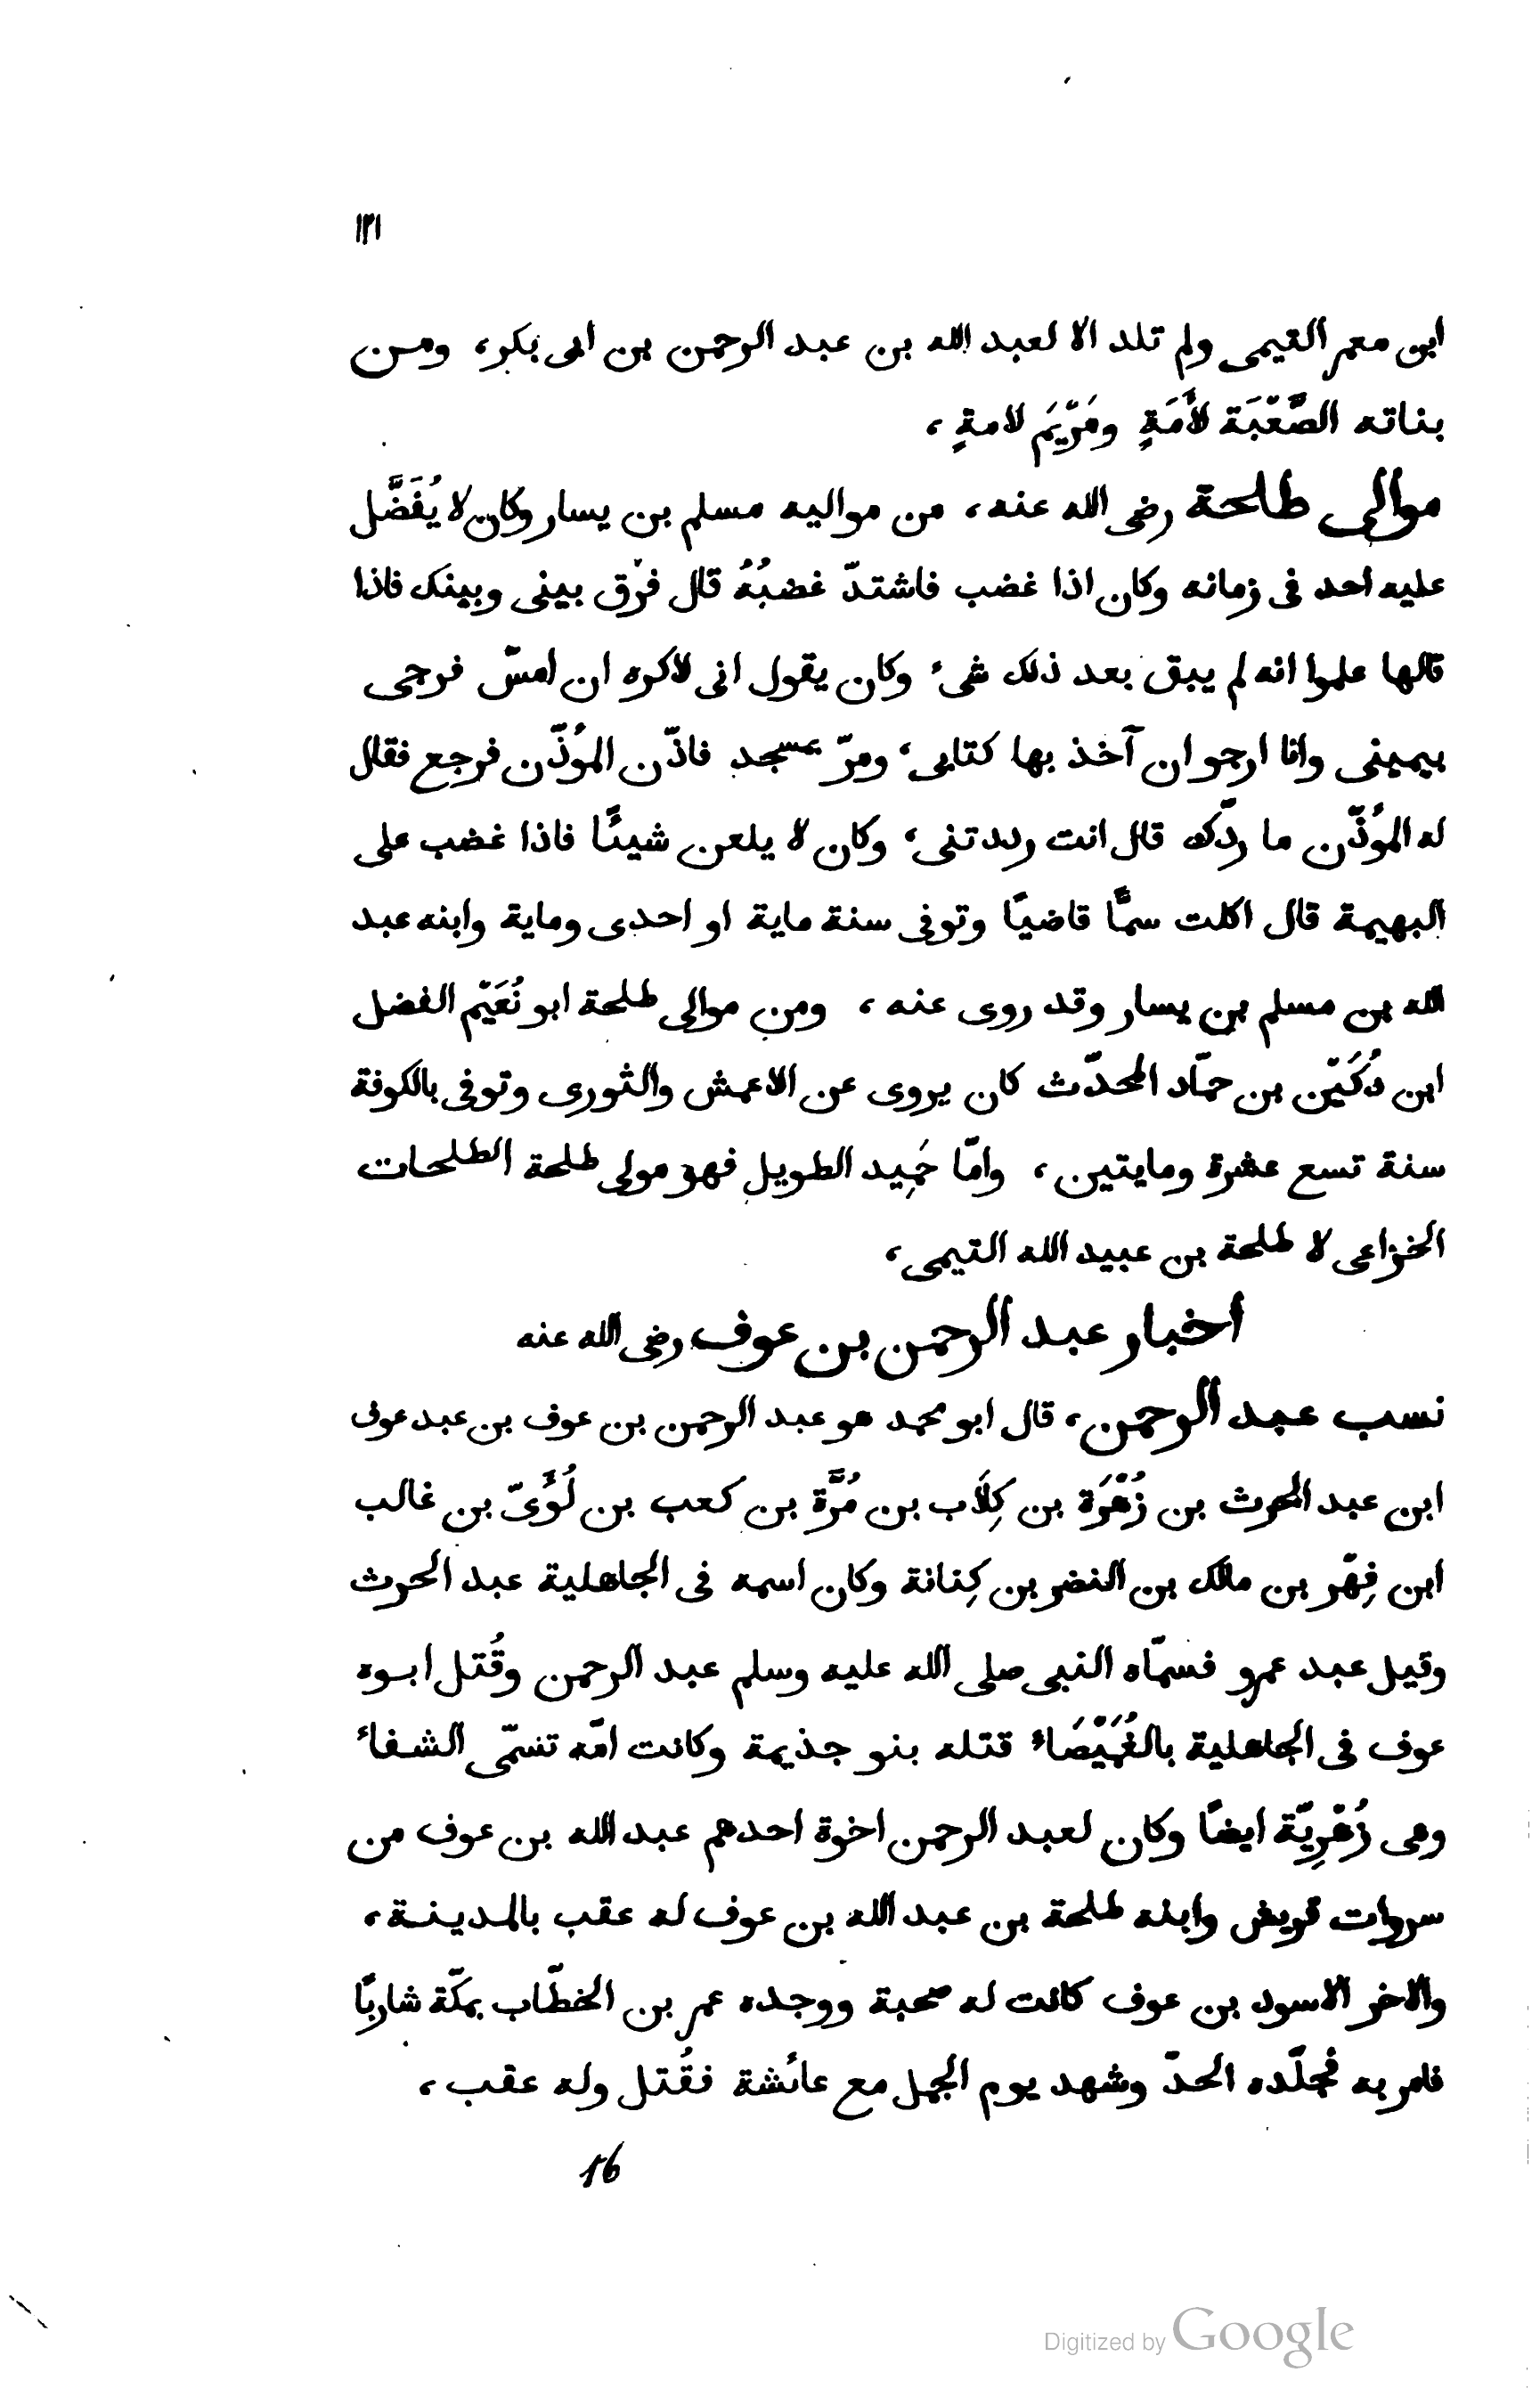 ١٢١
ابن معمر التيمى ولم تلد الا لعبد الله بن عبد الرحمن بن ابى بكر، ومن
بناته الصَّعْبَة لأَمَةٍ ومَرْيَم لامةٍ،
موالى طلحة رضى الله عنه، من مواليه مسلم بن يسار وكان لا يُفَضَّل
عليه احد فى زمانه وكان اذا غضب فاشتدّ غضبُهُ قال فرْق بينى وبينك فاذا
قالها علموا انه لم يبق بعد ذلك شىء وكان يقول انى لاكره ان امسّ فرجى
بيمينى وانا ارجو ان آخذ بها كتابى، ومرّ بمسجد فاذّن المؤذّن فرجع فقال
له المؤذّن ما ردّك قال انت رددتنى، وكان لا يلعن شيئًا فاذا غضب على
البهيمة قال اكلت سمًّا قاضيًا وتوفى سنة ماية او احدى وماية وابنه عبد
الله بن مسلم بن يسار وقد روى عنه، ومن موالى طلحة ابو نُعَيْم الفضل
ابن دُكَيْن بن حمّاد المحدّث كان يروى عن الاعمش والثورى وتوفى بالكوفة
سنة تسع عشرة ومايتين، وامّا حَمِيد الطويل فهو مولى طلحة الطلحات
الخزاعى لا طلحة بن عبيد الله التيمى،
اخبار عبد الرحمن بن عوف رضى الله عنه
نسب عبد الرحمن، قال ابو محمد هو عبد الرحمن بن عوف بن عبد عوف
ابن عبد الحرث بن زُهْرَة بن كِلَاب بن مُرَّة بن كعب بن لُؤَىّ بن غالب
ابن فِهْر بن مالك بن النضر بن كِنانة وكان اسمه فى الجاهلية عبد الحرث
وقيل عبد عمرو فسمّاه النبى صلى الله عليه وسلم عبد الرحمن وقُتل ابوه
عوف فى الجاهلية بالغُمَيْصَاء قتله بنو جذيمة وكانت امّه تسمّى الشفاء
وهى زُهْرِيّة ايضًا وكان لعبد الرحمن اخوة احدهم عبد الله بن عوف من
سروات قريش وابنه طلحة بن عبد الله بن عوف له عقب بالمدينة،
والاخر الاسود بن عوف كانت له صحبة ووجده عمر بن الخطّاب بمكّة شاربًا
فامر به فجلّده الحدّ وشهد يوم الجمل مع عائشة فقُتل وله عقب،
16
Digitized by Google